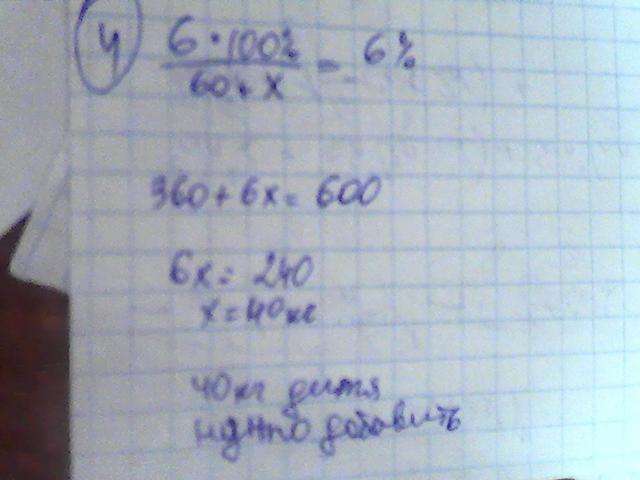 4
6 · 100% / 60 + x = 6%
360 + 6x = 600
6x = 240
x = 40 кг
40 кг
нужно добавить